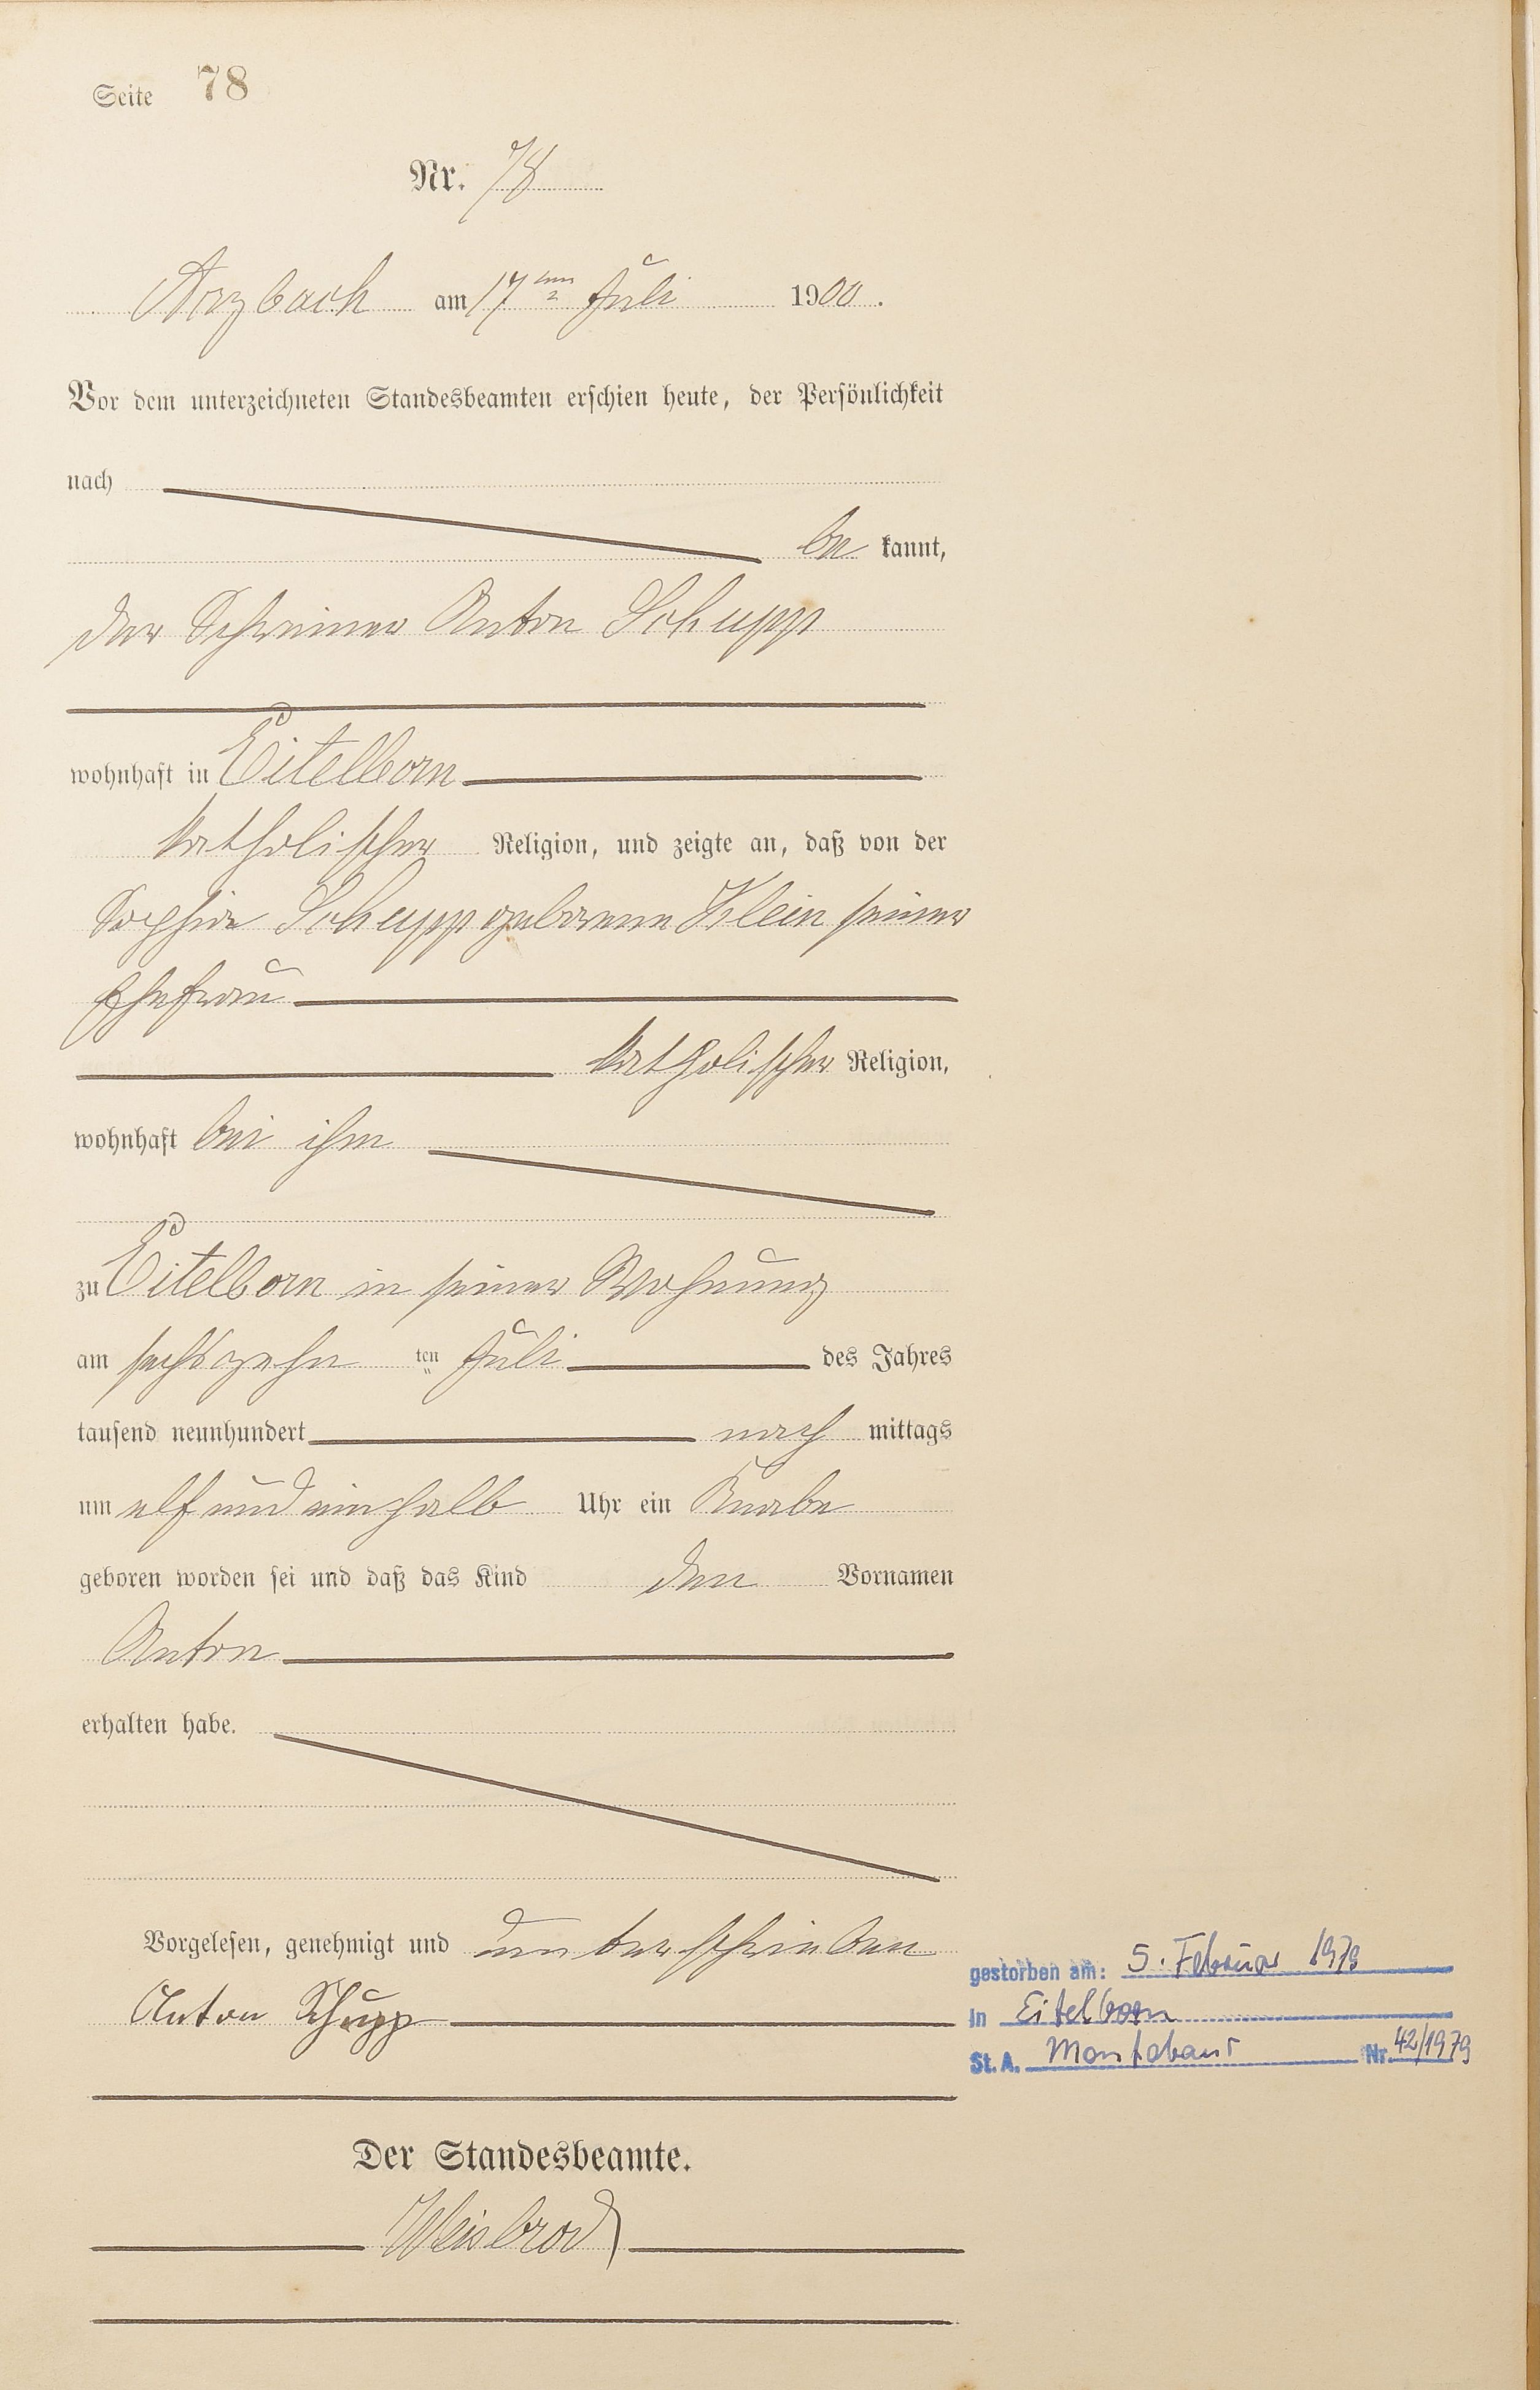 Seite 78
Nr. 78
Arzbach am 17ten Juli 1900.
Vor dem unterzeichneten Standesbeamten erschien heute, der Persönlichkeit
nach
be kannt,
der Schreiner Anton Schupp
wohnhaft in Eitelborn
katholischer Religion, und zeigte an, daß von der
Sophie Schupp geborene Klein seiner
Ehefrau
katholischer Religion,
wohnhaft bei ihm
zu Eitelborn in seiner Wohnung
am sechszehn ten Juli des Jahres
tausend neunhundert nach mittags
um elf und einhalb Uhr ein Knabe
geboren worden sei und daß das Kind den Vornamen
Anton
erhalten habe.
Vorgelesen, genehmigt und unterschrieben
Anton Schupp
gestorben am: 5. Februar 1979
in Eitelborn
St. A. Montabaur Nr. 42/1979
Der Standesbeamte.
Weisbrod